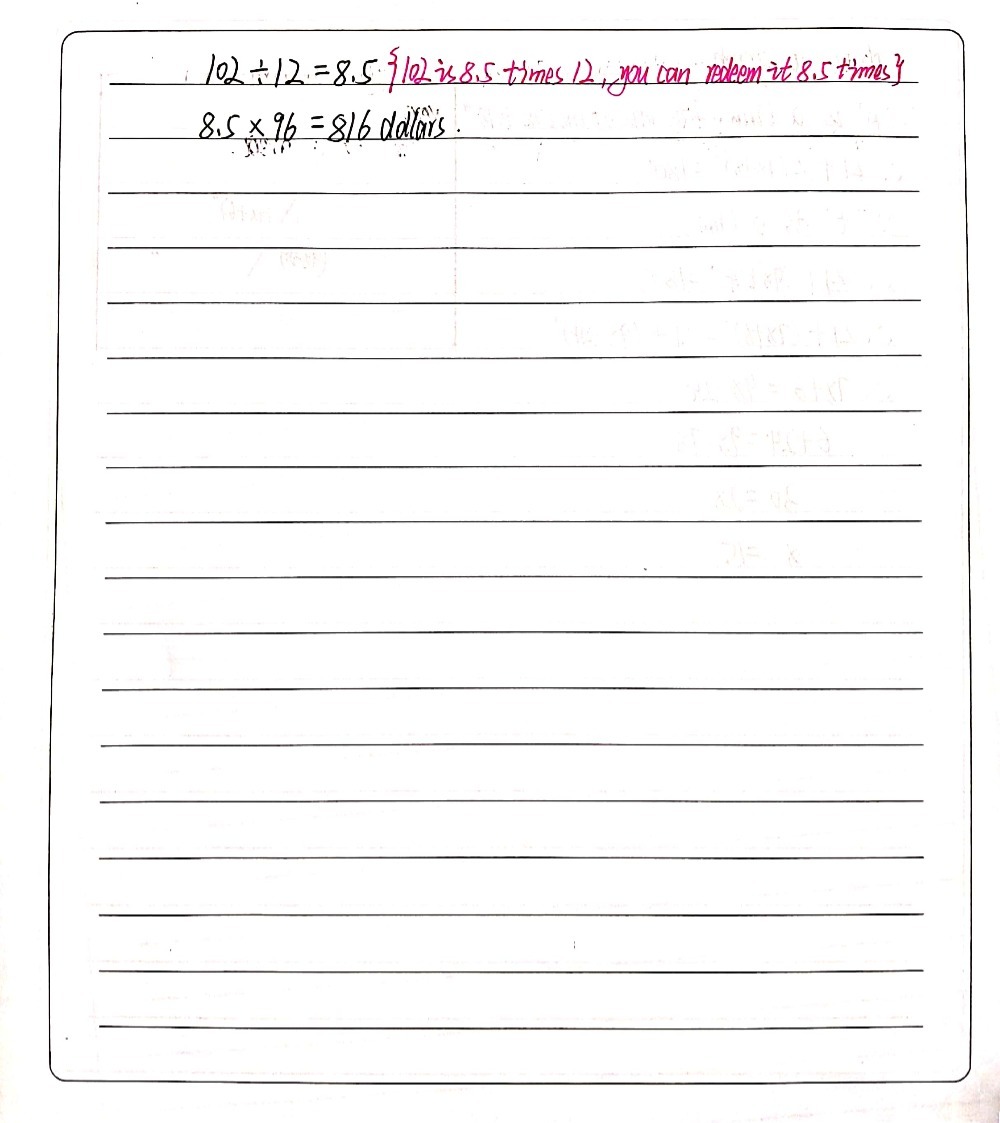 102 ÷ 12 = 8.5 {102 is 8.5 times 12, you can redeem it 8.5 times}
8.5 × 96 = 816 dollars.